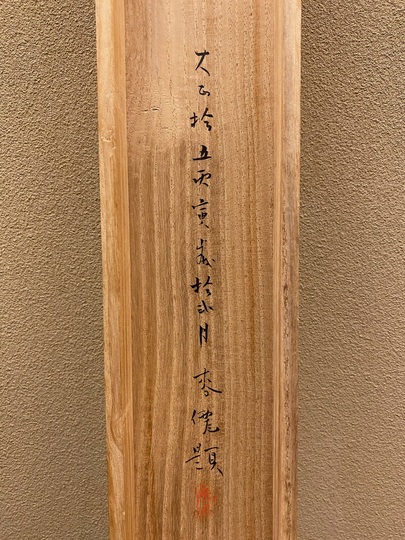 大正拾五丙寅歳拾弐月 麥僊題